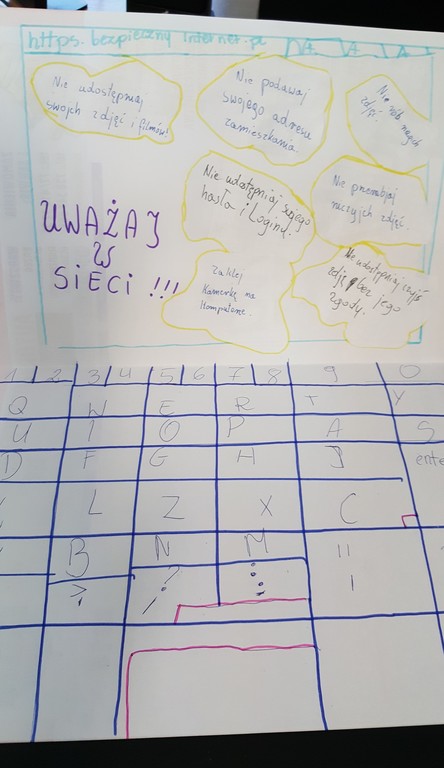 https. bezpieczny internet.pl
Nie udostępniaj
swoich zdjęć i filmów!
Nie podawaj
swojego adresu
zamieszkania.
Nie rób nagich
zdjęć.
Nie udostępniaj swojego
hasła i Loginu.
Nie przerabiaj
niczyjch zdjęć.
UWAŻAJ
W
SiECi !!!
Zaklej
Kamerkę na
Komputerze.
Nie udostępniaj czyjś
zdję bez jego
zgody.
1 2 3 4 5 6 7 8 9 0
Q W E R T Y
U I O P A S
D F G H J enter
L Z X C
B N M "